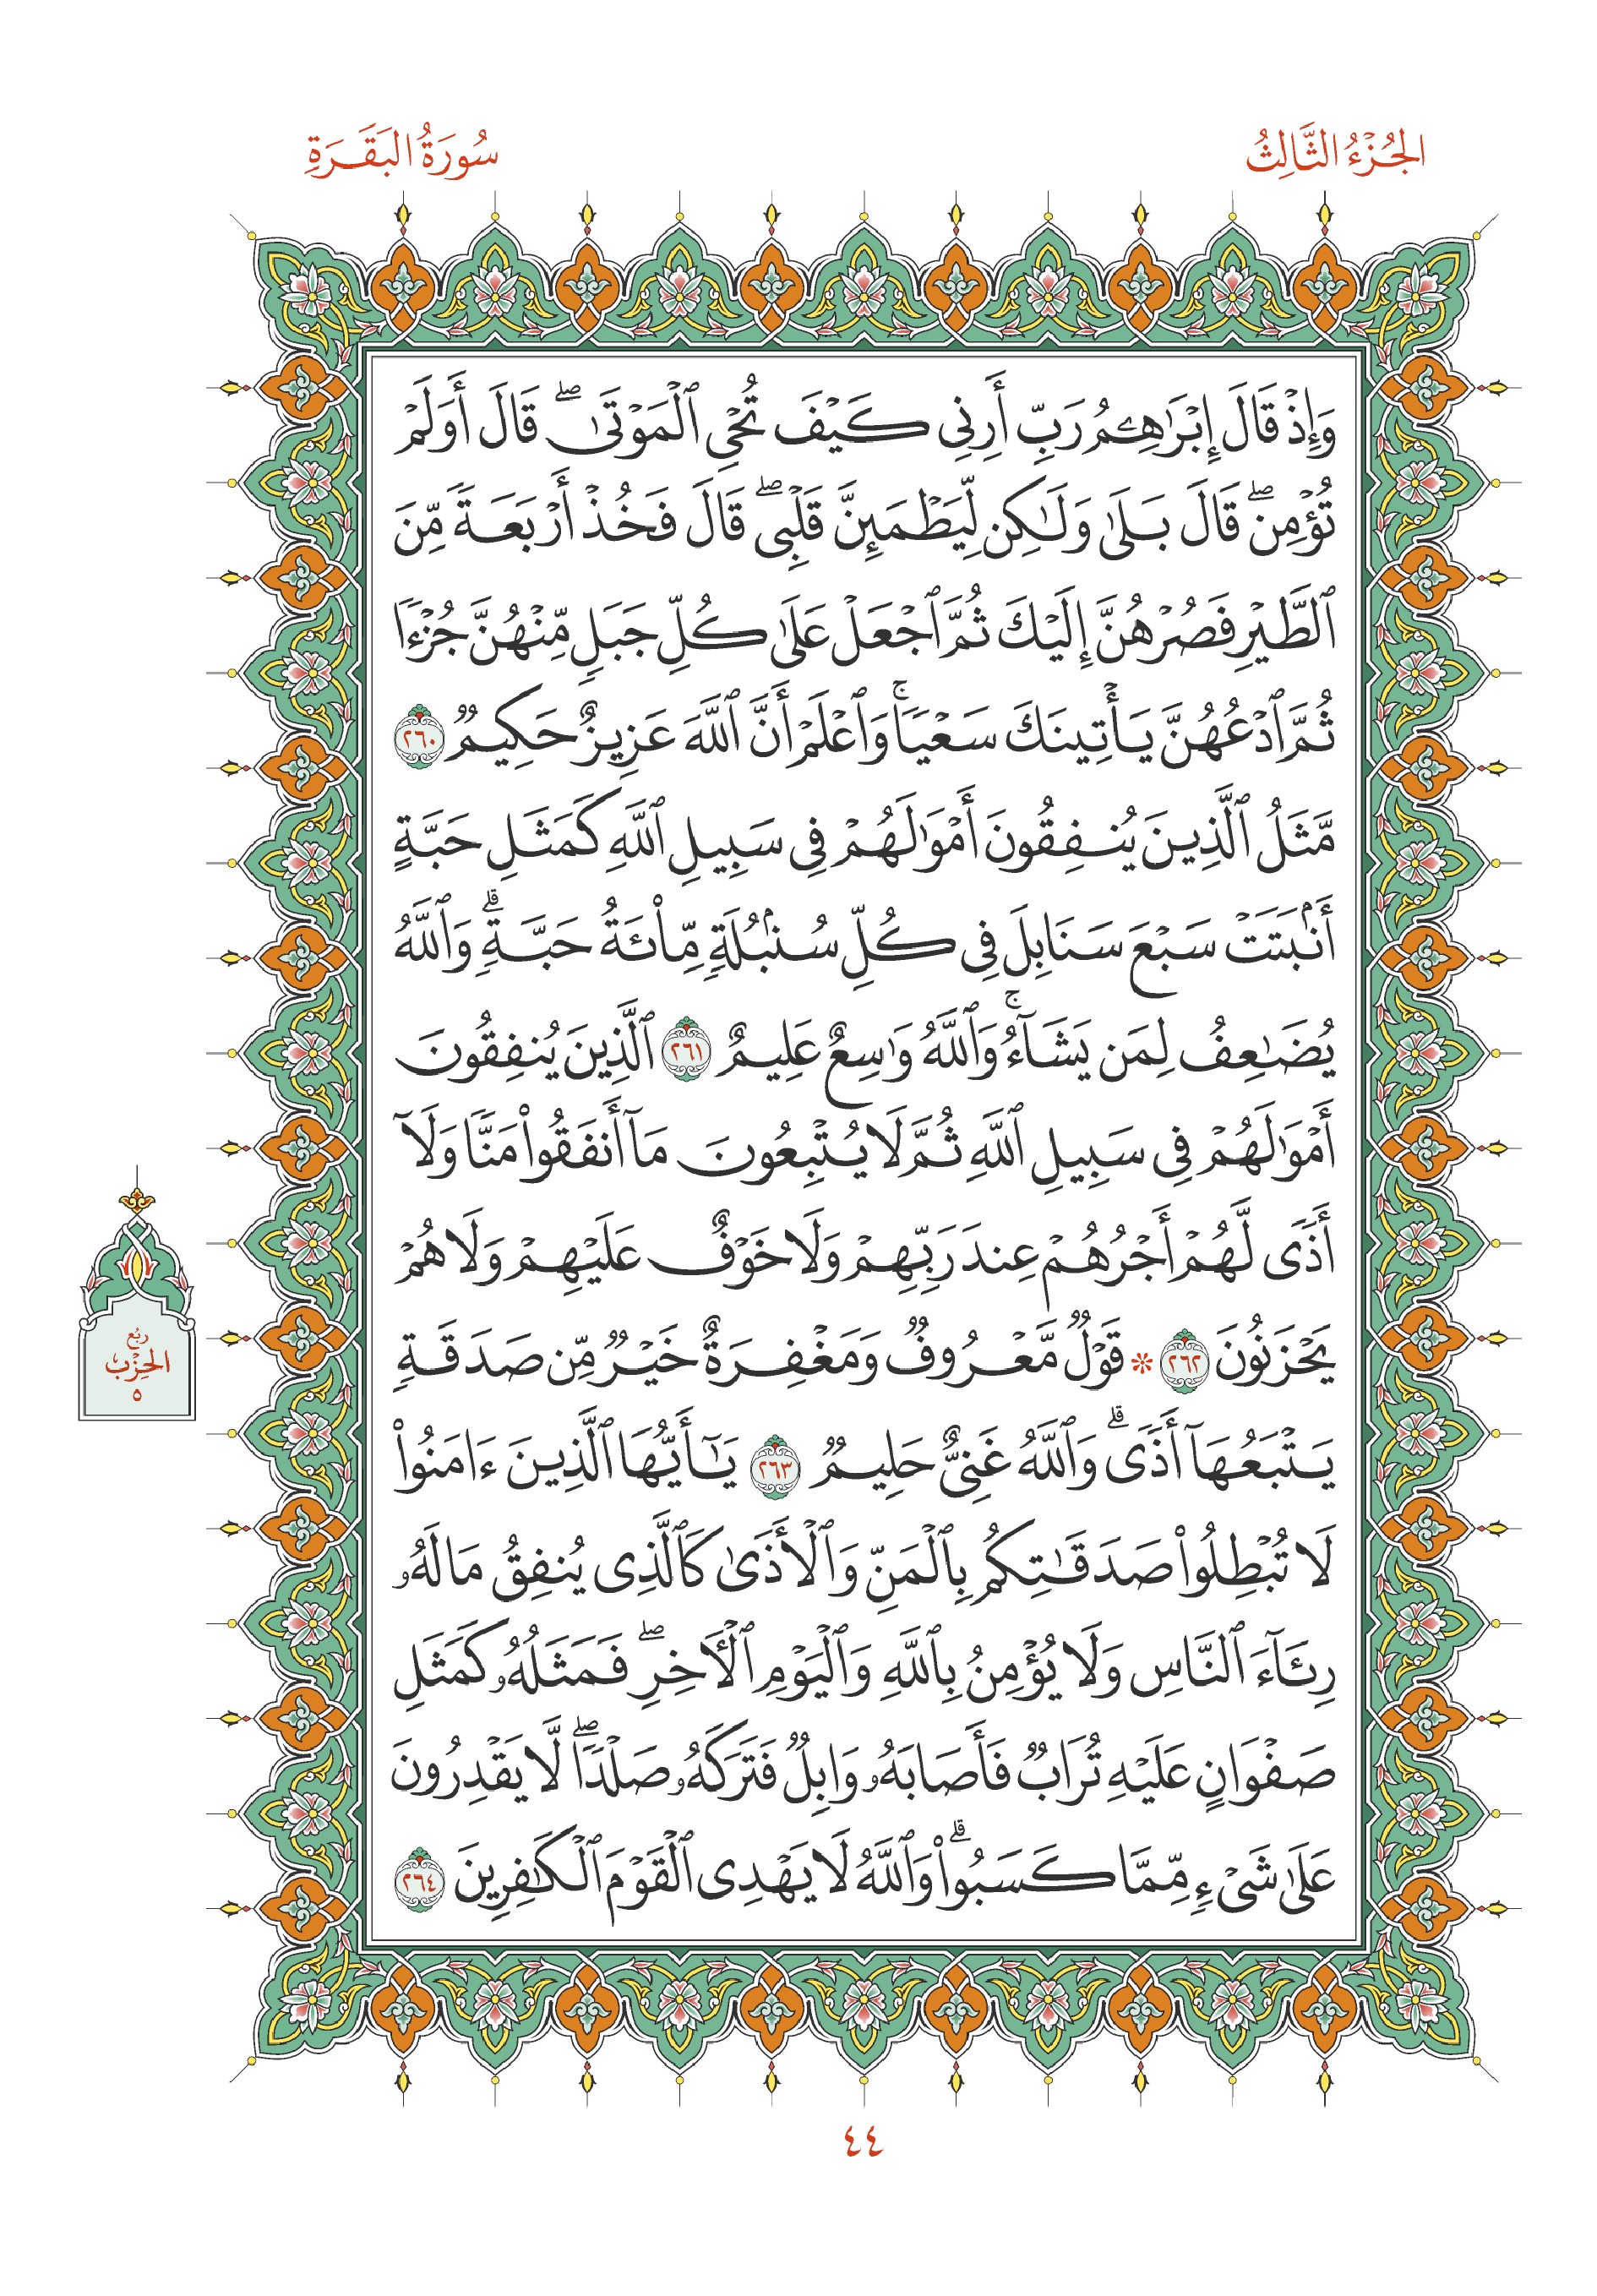 الجُزْءُ الثَّالِثُ
سُورَةُ البَقَرَةِ
وَإِذۡ قَالَ إِبۡرَٰهِـۧمُ رَبِّ أَرِنِي كَيۡفَ تُحۡيِ ٱلۡمَوۡتَىٰۖ قَالَ أَوَلَمۡ
تُؤۡمِنۖ قَالَ بَلَىٰ وَلَٰكِن لِّيَطۡمَئِنَّ قَلۡبِيۖ قَالَ فَخُذۡ أَرۡبَعَةٗ مِّنَ
ٱلطَّيۡرِ فَصُرۡهُنَّ إِلَيۡكَ ثُمَّ ٱجۡعَلۡ عَلَىٰ كُلِّ جَبَلٖ مِّنۡهُنَّ جُزۡءٗا
ثُمَّ ٱدۡعُهُنَّ يَأۡتِينَكَ سَعۡيٗاۚ وَٱعۡلَمۡ أَنَّ ٱللَّهَ عَزِيزٌ حَكِيمٞ ٢٦٠
مَّثَلُ ٱلَّذِينَ يُنفِقُونَ أَمۡوَٰلَهُمۡ فِي سَبِيلِ ٱللَّهِ كَمَثَلِ حَبَّةٍ
أَنۢبَتَتۡ سَبۡعَ سَنَابِلَ فِي كُلِّ سُنۢبُلَةٖ مِّاْئَةُ حَبَّةٖۗ وَٱللَّهُ
يُضَٰعِفُ لِمَن يَشَآءُۚ وَٱللَّهُ وَٰسِعٌ عَلِيمٌ ٢٦١ ٱلَّذِينَ يُنفِقُونَ
أَمۡوَٰلَهُمۡ فِي سَبِيلِ ٱللَّهِ ثُمَّ لَا يُتۡبِعُونَ مَآ أَنفَقُواْ مَنّٗا وَلَآ
أَذٗى لَّهُمۡ أَجۡرُهُمۡ عِندَ رَبِّهِمۡ وَلَا خَوۡفٌ عَلَيۡهِمۡ وَلَا هُمۡ
يَحۡزَنُونَ ٢٦٢ ۞ قَوۡلٞ مَّعۡرُوفٞ وَمَغۡفِرَةٌ خَيۡرٞ مِّن صَدَقَةٖ
يَتۡبَعُهَآ أَذٗىۗ وَٱللَّهُ غَنِيٌّ حَلِيمٞ ٢٦٣ يَٰٓأَيُّهَا ٱلَّذِينَ ءَامَنُواْ
لَا تُبۡطِلُواْ صَدَقَٰتِكُم بِٱلۡمَنِّ وَٱلۡأَذَىٰ كَٱلَّذِي يُنفِقُ مَالَهُۥ
رِئَآءَ ٱلنَّاسِ وَلَا يُؤۡمِنُ بِٱللَّهِ وَٱلۡيَوۡمِ ٱلۡأٓخِرِۖ فَمَثَلُهُۥ كَمَثَلِ
صَفۡوَانٍ عَلَيۡهِ تُرَابٞ فَأَصَابَهُۥ وَابِلٞ فَتَرَكَهُۥ صَلۡدٗاۖ لَّا يَقۡدِرُونَ
عَلَىٰ شَيۡءٖ مِّمَّا كَسَبُواْۗ وَٱللَّهُ لَا يَهۡدِي ٱلۡقَوۡمَ ٱلۡكَٰفِرِينَ ٢٦٤
رُبْع
الحِزْب
٥
٤٤